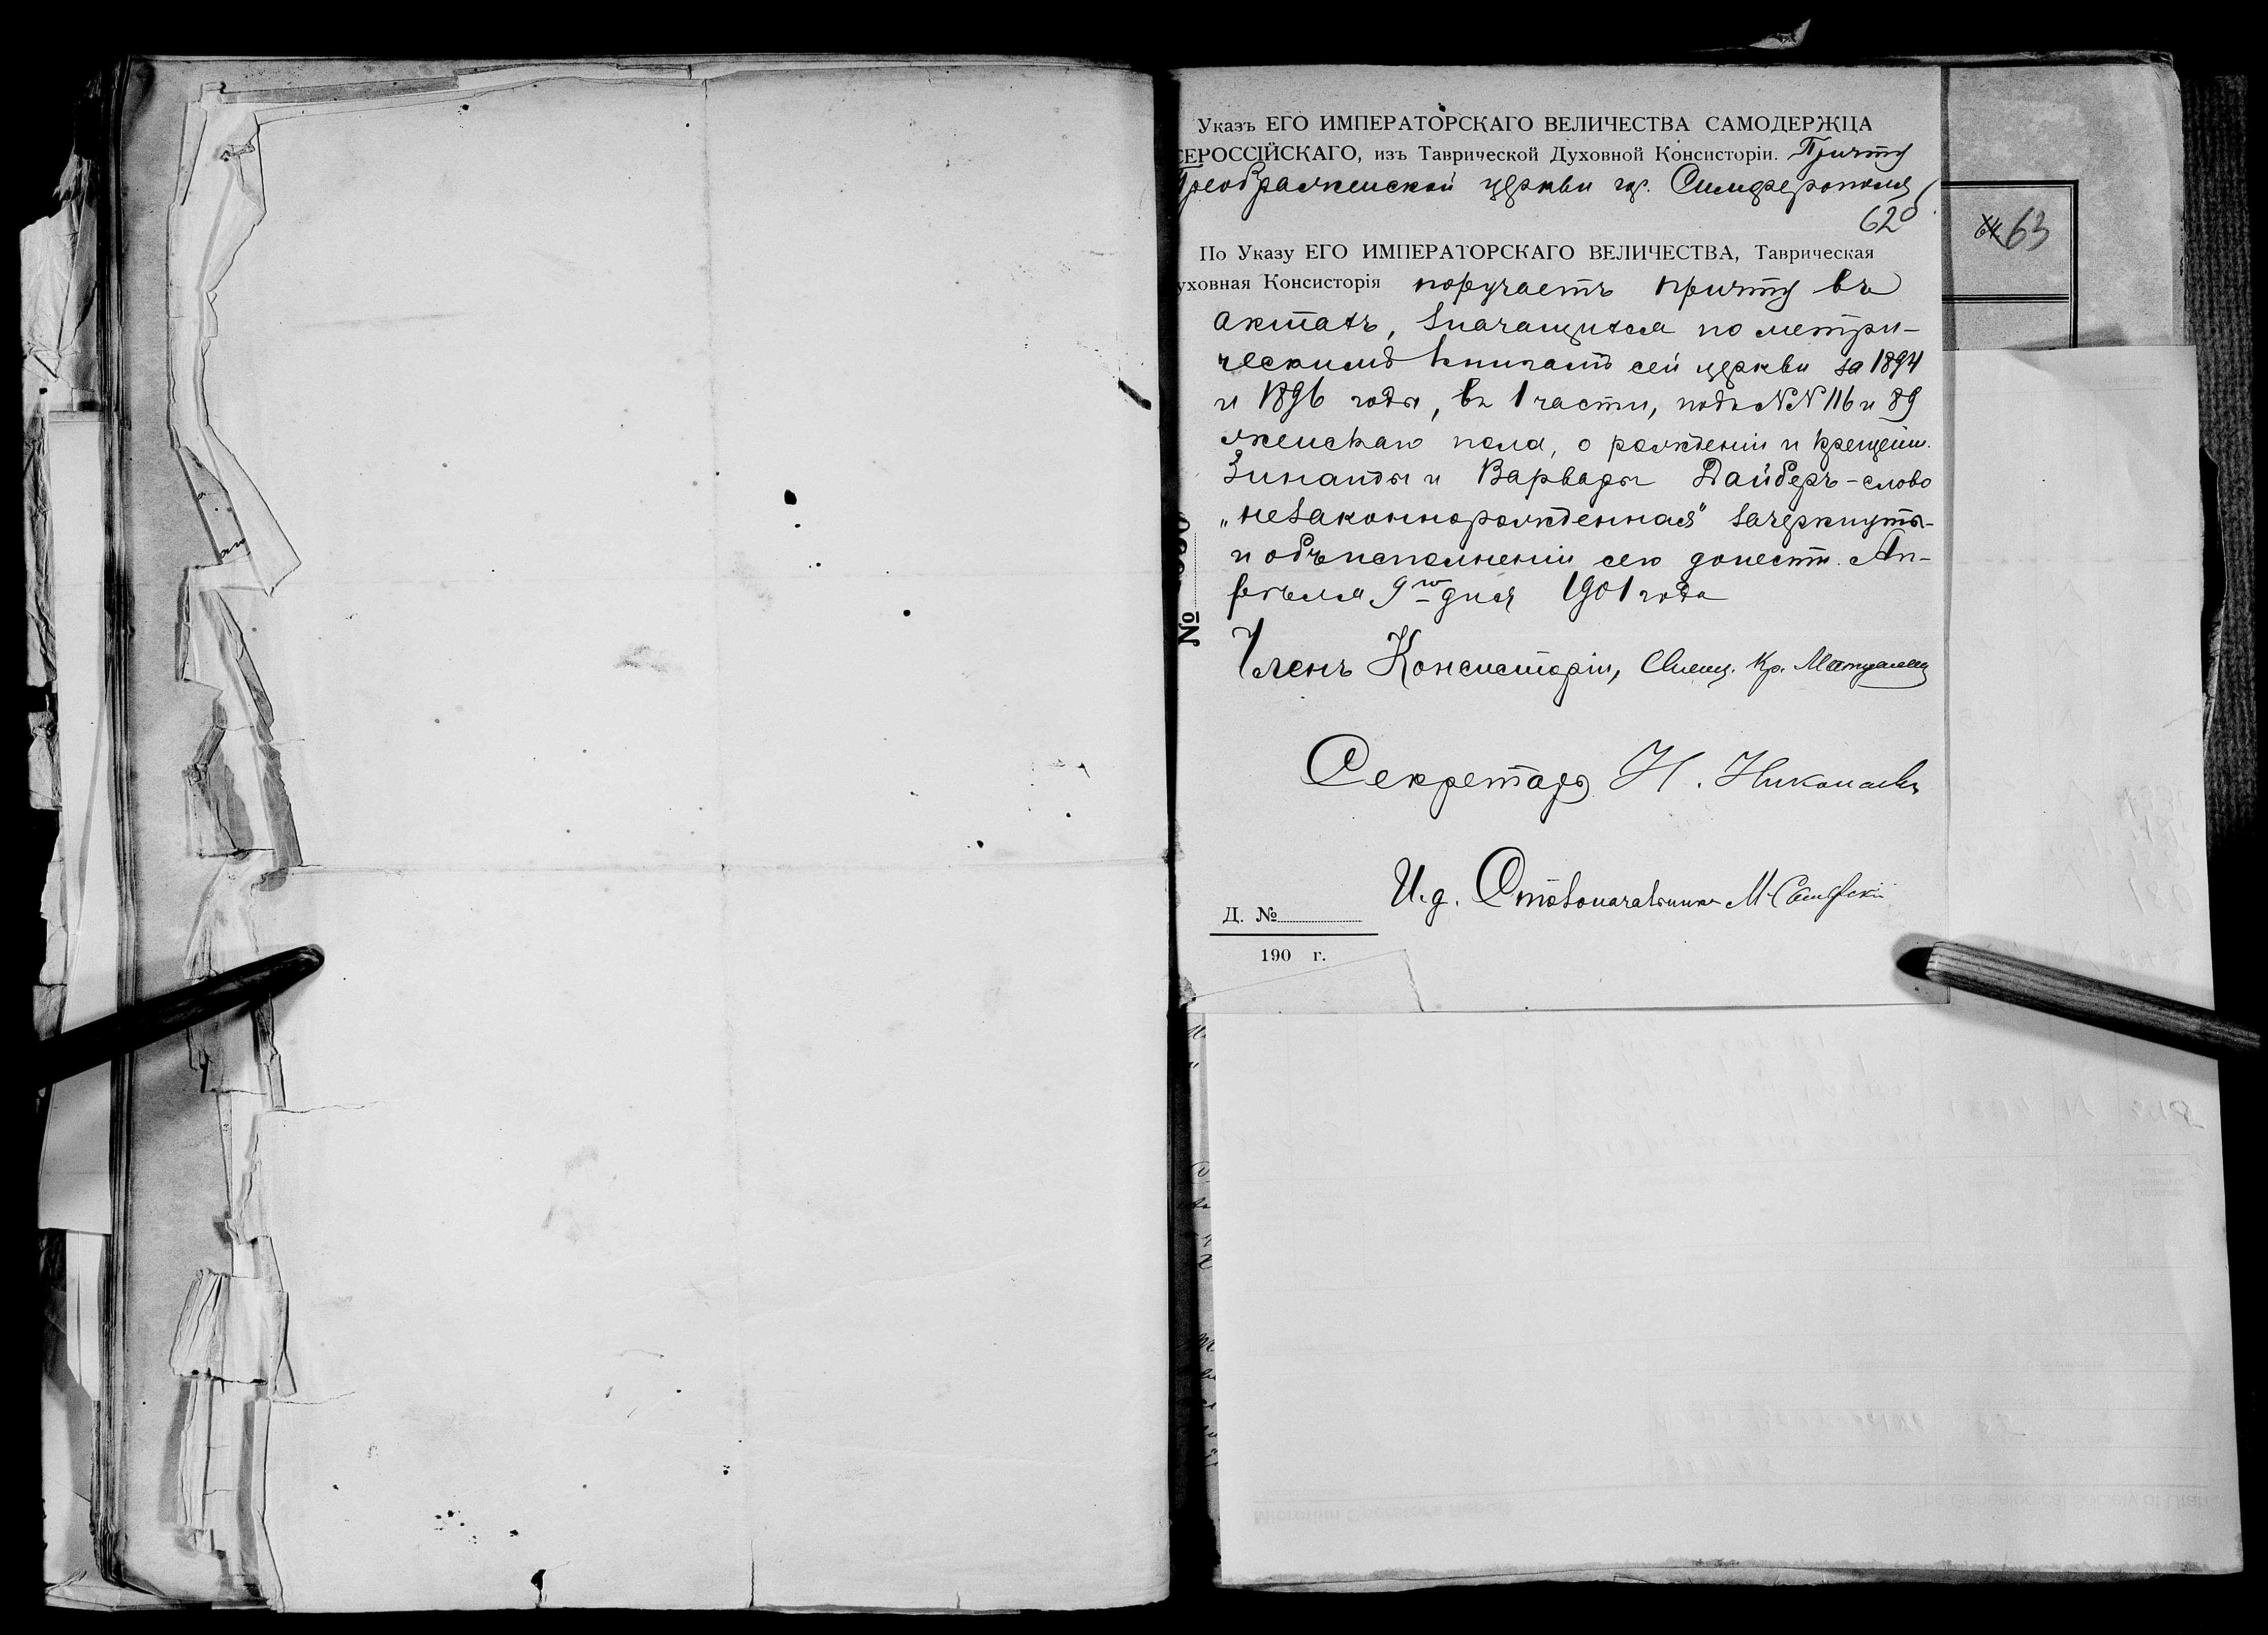 Указъ ЕГО ИМПЕРАТОРСКАГО ВЕЛИЧЕСТВА САМОДЕРЖЦА
СЕРОССІЙСКАГО, изъ Таврической Духовной Консисторіи. Причту
Преображенской церкви гор. Симферополя
620
63
По Указу ЕГО ИМПЕРАТОРСКАГО ВЕЛИЧЕСТВА, Таврическая
уховная Консисторія поручаетъ причту въ
актахъ, значащихся по метри-
ческимъ книгамъ сей церкви за 1894
и 1896 годы, въ 1 части, подъ №№ 116 и 89
женскаго пола, о рожденіи и крещеніи
Зинаиды и Варвары Дайберъ - слово
„незаконнорожденная" зачеркнуть
и объ исполненіи сего донести. Ап-
рѣля 9го дня 1901 года
№
Членъ Консисторіи, Свящ. Кр.
Секретарь Н. Николаевъ
И.д. Столоначальника М.
Д. №
190 г.